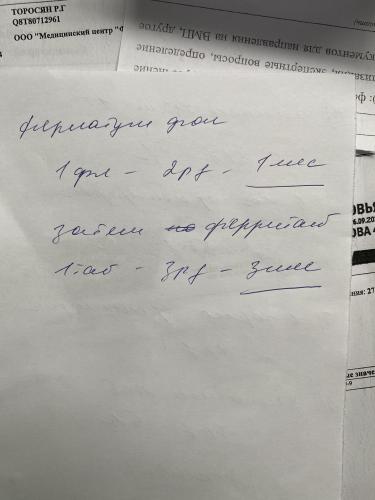 ТОРОСЯН Р.Г
Q8T80712961
ООО "Медицинский центр "Ф
кументов для направления на ВМП, другое
экспертные вопросы, определение
Ферлатум фол
1 фл - 2 р/д - 1 мес
затем но ферритаб
1 таб - 3 р/д - 3 мес